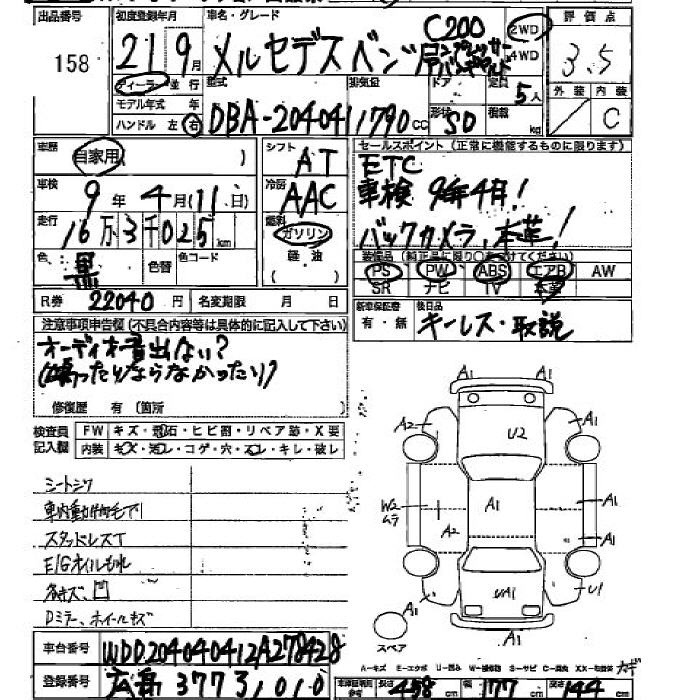 出品番号 初度登録年月 車名・グレード C200 2WD 評価点
158 21 9月 メルセデスベンツ 4WD 3.5
ディーラー 並行 型式 排気量 ドア 定員 5人 外装 内装
モデル年式 年 DBA-204041 1790cc 形状 SD 積載 kg C
ハンドル 左 右
車歴 自家用 ( ) シフト AT セールスポイント (正常に機能するものに限ります)
車検 9年4月(11日) 冷房 AAC ETC
車検 9年4月!
走行 16万3千025km 燃料 ガソリン バックカメラ、本革!
色 黒 色替 色コード 軽油 ( ) 装備品 (純正品に限り○をつけてください)
PS PW ABS エアB AW
SR ナビ TV 本革
R券 22040円 名変期限 月 日 新車保証書 後日品
有・無 キーレス・取説
注意事項申告欄 (不具合内容等は具体的に記入して下さい)
オーディオ音出ない?
(鳴ったりならなかったり)
修復歴 有 (箇所
検査員 FW キズ・飛石・ヒビ割・リペア跡・X要
記入欄 内装 キズ・汚レ・コゲ・穴・スレ・キレ・破レ
A1 A1
A2 U2 A1
W2 ムラ A1 A1
A2 A1
A1 UA1 U1
A1
スペア
シートシワ
車内動物毛アリ
スタッドレスT
E/Gオイルもれ
各キズ、凹
Dミラー、ホイールキズ
A-キズ E-エクボ U-凹み W-補修跡 S-サビ C-腐食 XX-交換済 カギ
車台番号 WDD2040412A278428
登録番号 広島 377 3 1010 車検証明記 長さ 458cm 幅 177cm 高さ 144cm